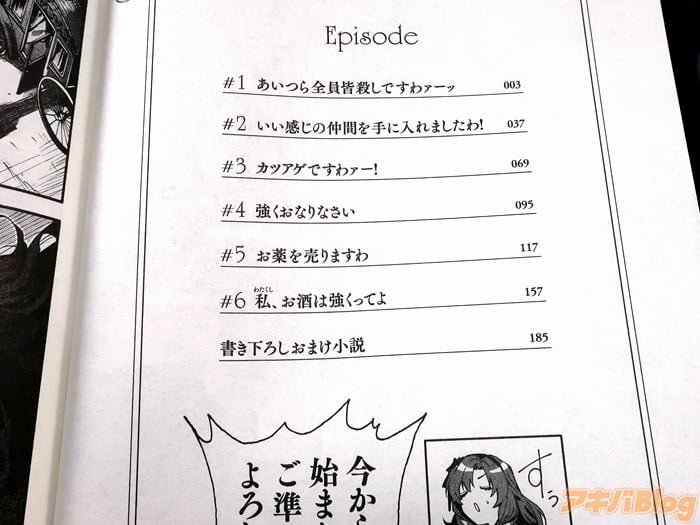 Episode
#1 あいつら全員皆殺しですわァーッ 003
#2 いい感じの仲間を手に入れましたわ! 037
#3 カツアゲですわァー! 069
#4 強くおなりなさい 095
#5 お薬を売りますわ 117
わたくし
#6 私、お酒は強くってよ 157
書き下ろしおまけ小説 185
今から
始ま
ご準
よろ
すぅ
アキバBlog